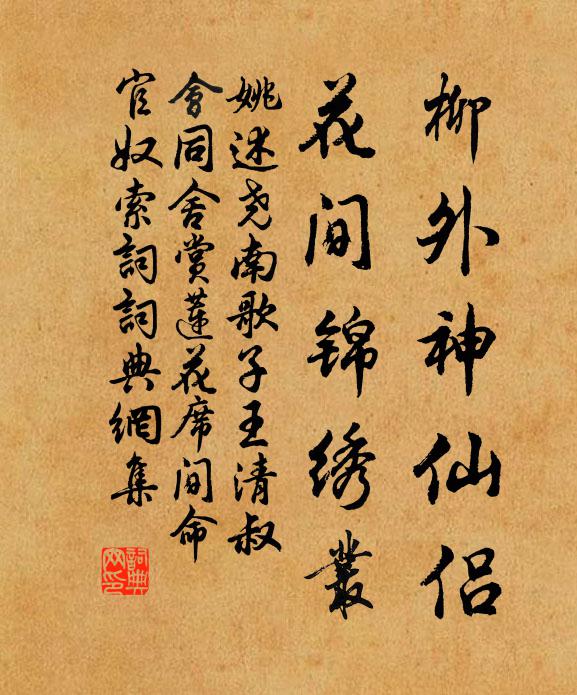 柳外神仙侣
花间锦绣丛
姚述尧南歌子王清叔
會同舍赏蓮花席间命
官奴索詞詞典網集
詞典网印